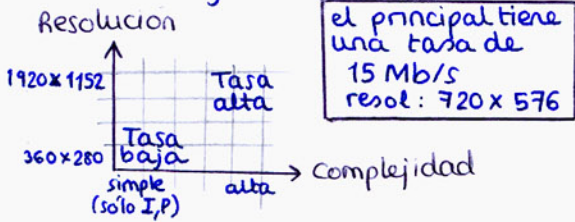 Resolución
1920x1152
360x280
Tasa
alta
Tasa
baja
simple
(sólo I,P)
alta
Complejidad
el principal tiene
una tasa de
15 Mb/s
resol: 720 x 576